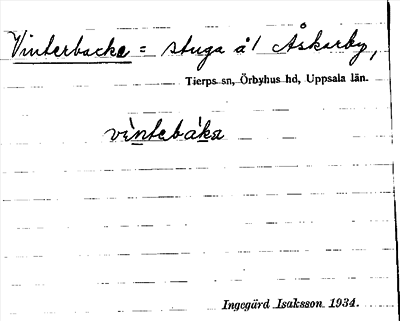 Vinterbacke = stuga å Åskarby,
Tierps sn, Örbyhus hd, Uppsala län.
vìntebáka
Ingegärd Isaksson 1934.